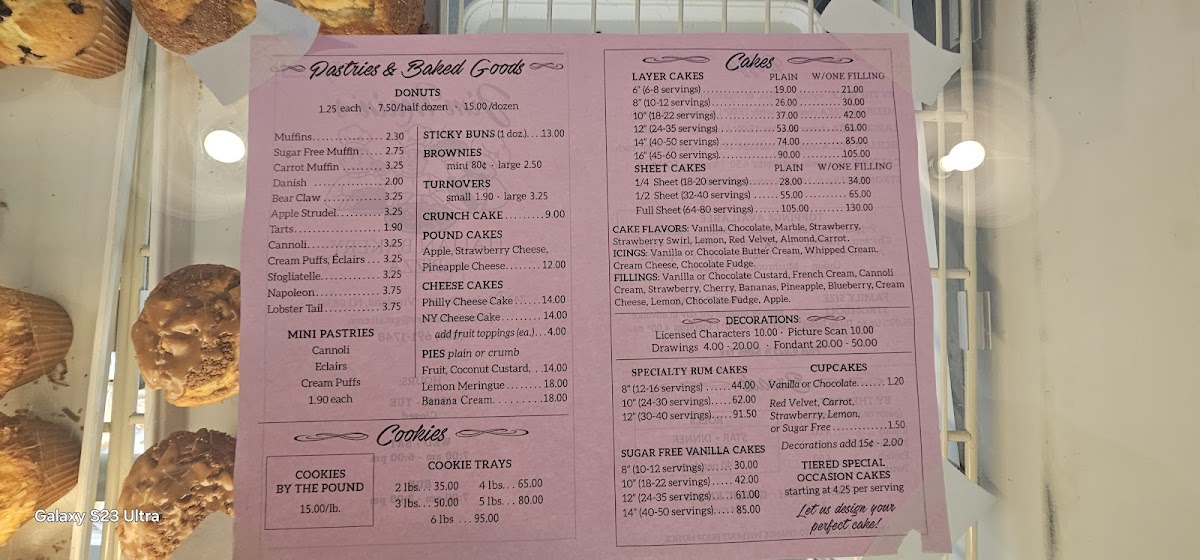 Pastries & Baked Goods
DONUTS
1.25 each · 7.50/half dozen · 15.00/dozen
Muffins.................. 2.30
Sugar Free Muffin..... 2.75
Carrot Muffin .......... 3.25
Danish ................... 2.00
Bear Claw ............... 3.25
Apple Strudel............ 3.25
Tarts...................... 1.90
Cannoli................... 3.25
Cream Puffs, Éclairs ... 3.25
Sfogliatelle............... 3.25
Napoleon................. 3.75
Lobster Tail.............. 3.75
MINI PASTRIES
Cannoli
Eclairs
Cream Puffs
1.90 each
STICKY BUNS (1 doz.)....13.00
BROWNIES
mini 80¢ · large 2.50
TURNOVERS
small 1.90 · large 3.25
CRUNCH CAKE ..........9.00
POUND CAKES
Apple, Strawberry Cheese,
Pineapple Cheese........ 12.00
CHEESE CAKES
Philly Cheese Cake ...... 14.00
NY Cheese Cake.......... 14.00
add fruit toppings (ea.)...4.00
PIES plain or crumb
Fruit, Coconut Custard, .. 14.00
Lemon Meringue......... 18.00
Banana Cream............18.00
Cookies
COOKIES
BY THE POUND
15.00/lb.
COOKIE TRAYS
2 lbs. . . 35.00 4 lbs. . . 65.00
3 lbs. . . 50.00 5 lbs. . . 80.00
6 lbs . . . 95.00
Cakes
LAYER CAKES PLAIN W/ONE FILLING
6" (6-8 servings)....................19.00 ........... 21.00
8" (10-12 servings)................. 26.00 .......... 30.00
10" (18-22 servings)................ 37.00 .......... 42.00
12" (24-35 servings)................ 53.00 .......... 61.00
14" (40-50 servings)................ 74.00 .......... 85.00
16" (45-60 servings)................ 90.00 ..........105.00
SHEET CAKES PLAIN W/ONE FILLING
1/4 Sheet (18-20 servings)........ 28.00 ............ 34.00
1/2 Sheet (32-40 servings) ....... 55.00 ............ 65.00
Full Sheet (64-80 servings) ...... 105.00 .......... 130.00
CAKE FLAVORS: Vanilla, Chocolate, Marble, Strawberry,
Strawberry Swirl, Lemon, Red Velvet, Almond,Carrot.
ICINGS: Vanilla or Chocolate Butter Cream, Whipped Cream,
Cream Cheese, Chocolate Fudge.
FILLINGS: Vanilla or Chocolate Custard, French Cream, Cannoli
Cream, Strawberry, Cherry, Bananas, Pineapple, Blueberry, Cream
Cheese, Lemon, Chocolate Fudge, Apple.
DECORATIONS:
Licensed Characters 10.00 · Picture Scan 10.00
Drawings 4.00 - 20.00 · Fondant 20.00 - 50.00
SPECIALTY RUM CAKES
8" (12-16 servings) ...... 44.00
10" (24-30 servings)..... 62.00
12" (30-40 servings)..... 91.50
SUGAR FREE VANILLA CAKES
8" (10-12 servings)....... 30.00
10" (18-22 servings)..... 42.00
12" (24-35 servings)..... 61.00
14" (40-50 servings)..... 85.00
CUPCAKES
Vanilla or Chocolate....... 1.20
Red Velvet, Carrot,
Strawberry, Lemon,
or Sugar Free ...............1.50
Decorations add 15¢ - 2.00
TIERED SPECIAL
OCCASION CAKES
starting at 4.25 per serving
Let us design your
perfect cake!
Galaxy S23 Ultra